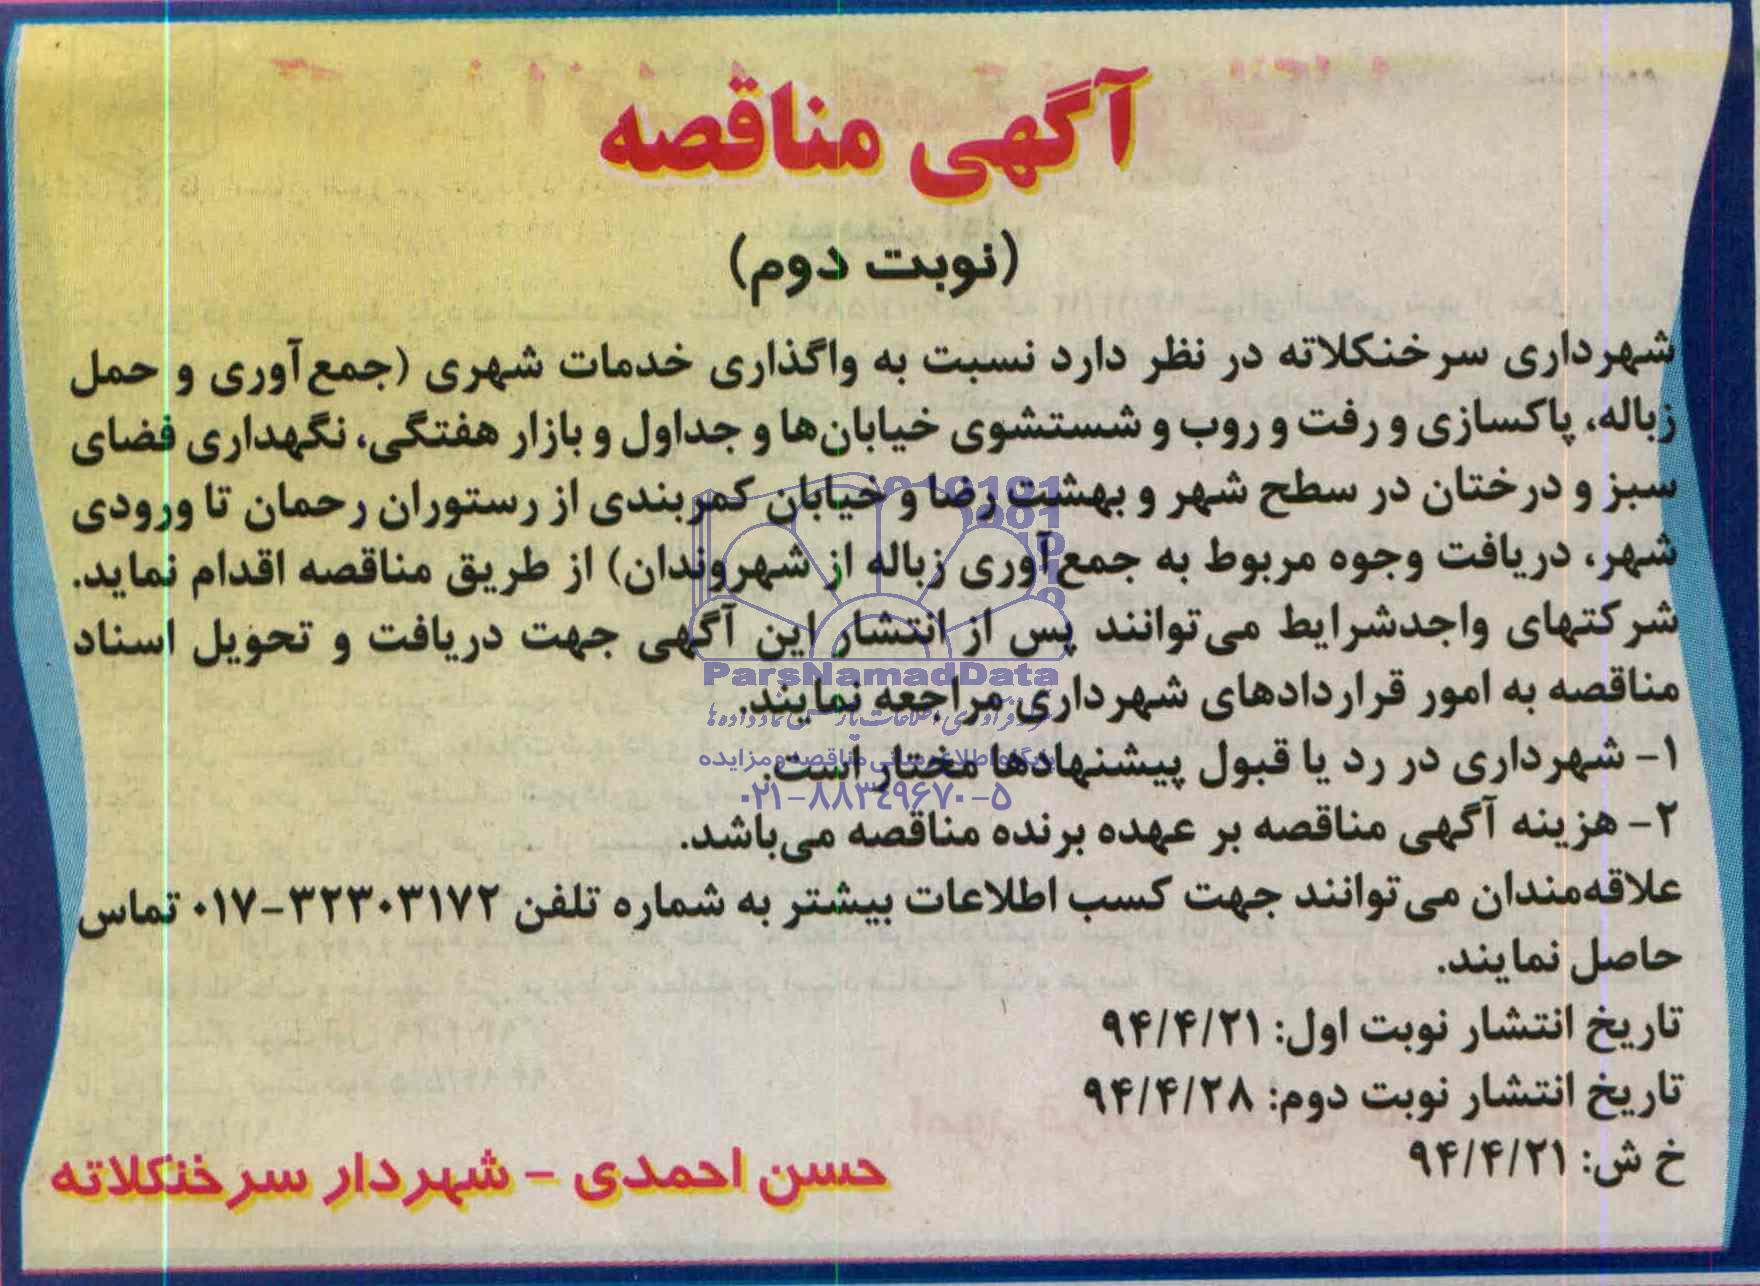 آگهی مناقصه
(نوبت دوم)
شهرداری سرخنکلاته در نظر دارد نسبت به واگذاری خدمات شهری (جمع‌آوری و حمل
زباله، پاکسازی و رفت و روب و شستشوی خیابان‌ها و جداول و بازار هفتگی، نگهداری فضای
سبز و درختان در سطح شهر و بهشت رضا و خیابان کمربندی از رستوران رحمان تا ورودی
شهر، دریافت وجوه مربوط به جمع‌آوری زباله از شهروندان) از طریق مناقصه اقدام نماید.
شرکتهای واجدشرایط می‌توانند پس از انتشار این آگهی جهت دریافت و تحویل اسناد
ParsNamadData
مناقصه به امور قراردادهای شهرداری مراجعه نمایند.
۱- شهرداری در رد یا قبول پیشنهادها مختار است.
پایگاه اطلاع رسانی مناقصه و مزایده
۰۲۱-۸۸۳۴۹۶۷۰-۵
۲- هزینه آگهی مناقصه بر عهده برنده مناقصه می‌باشد.
علاقه‌مندان می‌توانند جهت کسب اطلاعات بیشتر به شماره تلفن ۳۲۳۰۳۱۷۲-۰۱۷ تماس
حاصل نمایند.
تاریخ انتشار نوبت اول: ۹۴/۴/۲۱
تاریخ انتشار نوبت دوم: ۹۴/۴/۲۸
خ ش: ۹۴/۴/۲۱
حسن احمدی - شهردار سرخنکلاته